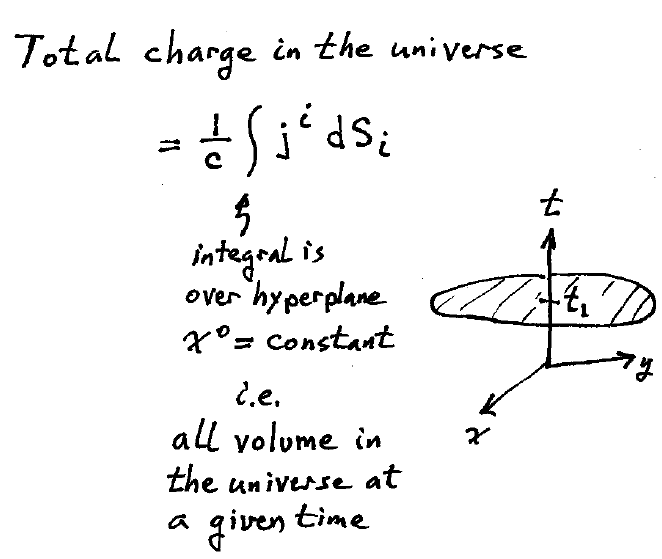 Total charge in the universe
= 1/c ∫ jⁱ dSᵢ
integral is
over hyperplane
x⁰ = constant
i.e.
all volume in
the universe at
a given time
t
t₁
y
x